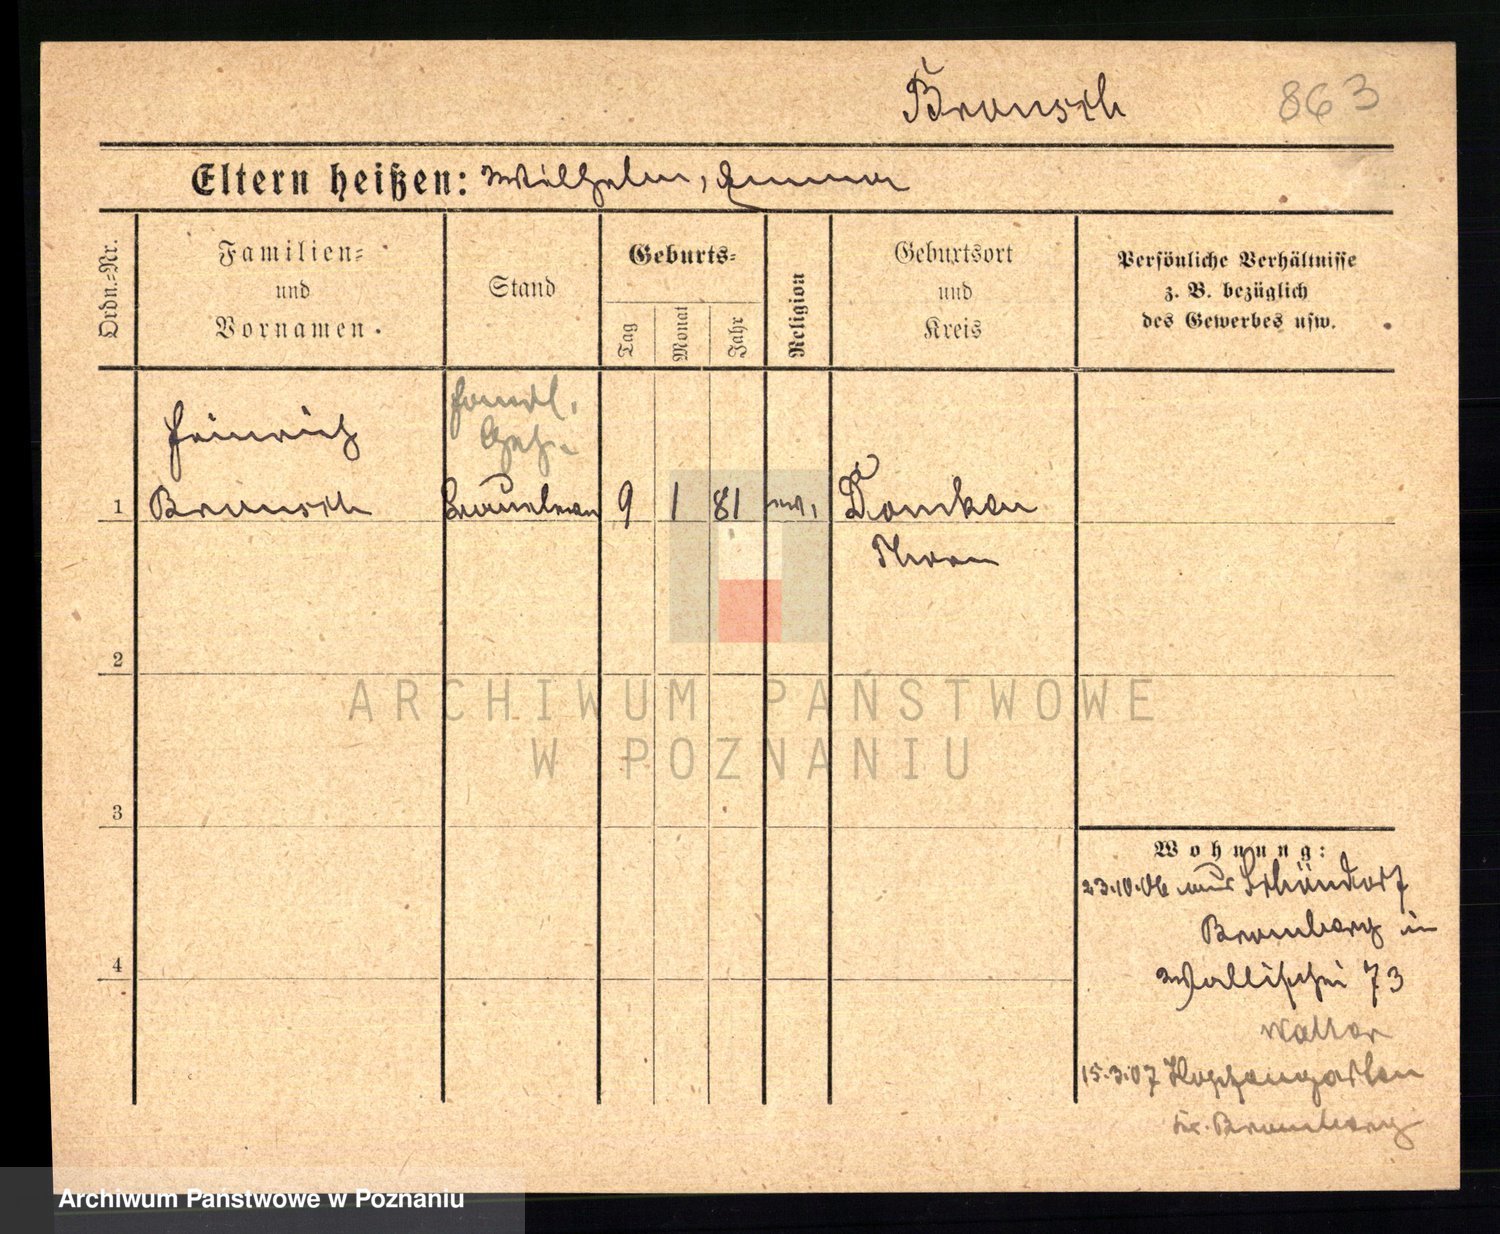 Bronsch 863
Eltern heißen: Wilhelm, Emma
Ordn.=Nr.
Familien=
und
Vornamen.
Stand
Geburts=
Tag
Monat
Jahr
Religion
Geburtsort
und
Kreis
Persönliche Verhältnisse
z. B. bezüglich
des Gewerbes usw.
Heinrich
Handl.
Geh.
1 Bronsch 9 1 81 ev.
Thorn
2
3
4
ARCHIWUM PAŃSTWOWE
W POZNANIU
Wohnung:
23.10.06 aus Schöndorf
Bromberg in
Wallischei 73
15.3.07 Hopfengarten
Kr. Bromberg
Archiwum Państwowe w Poznaniu